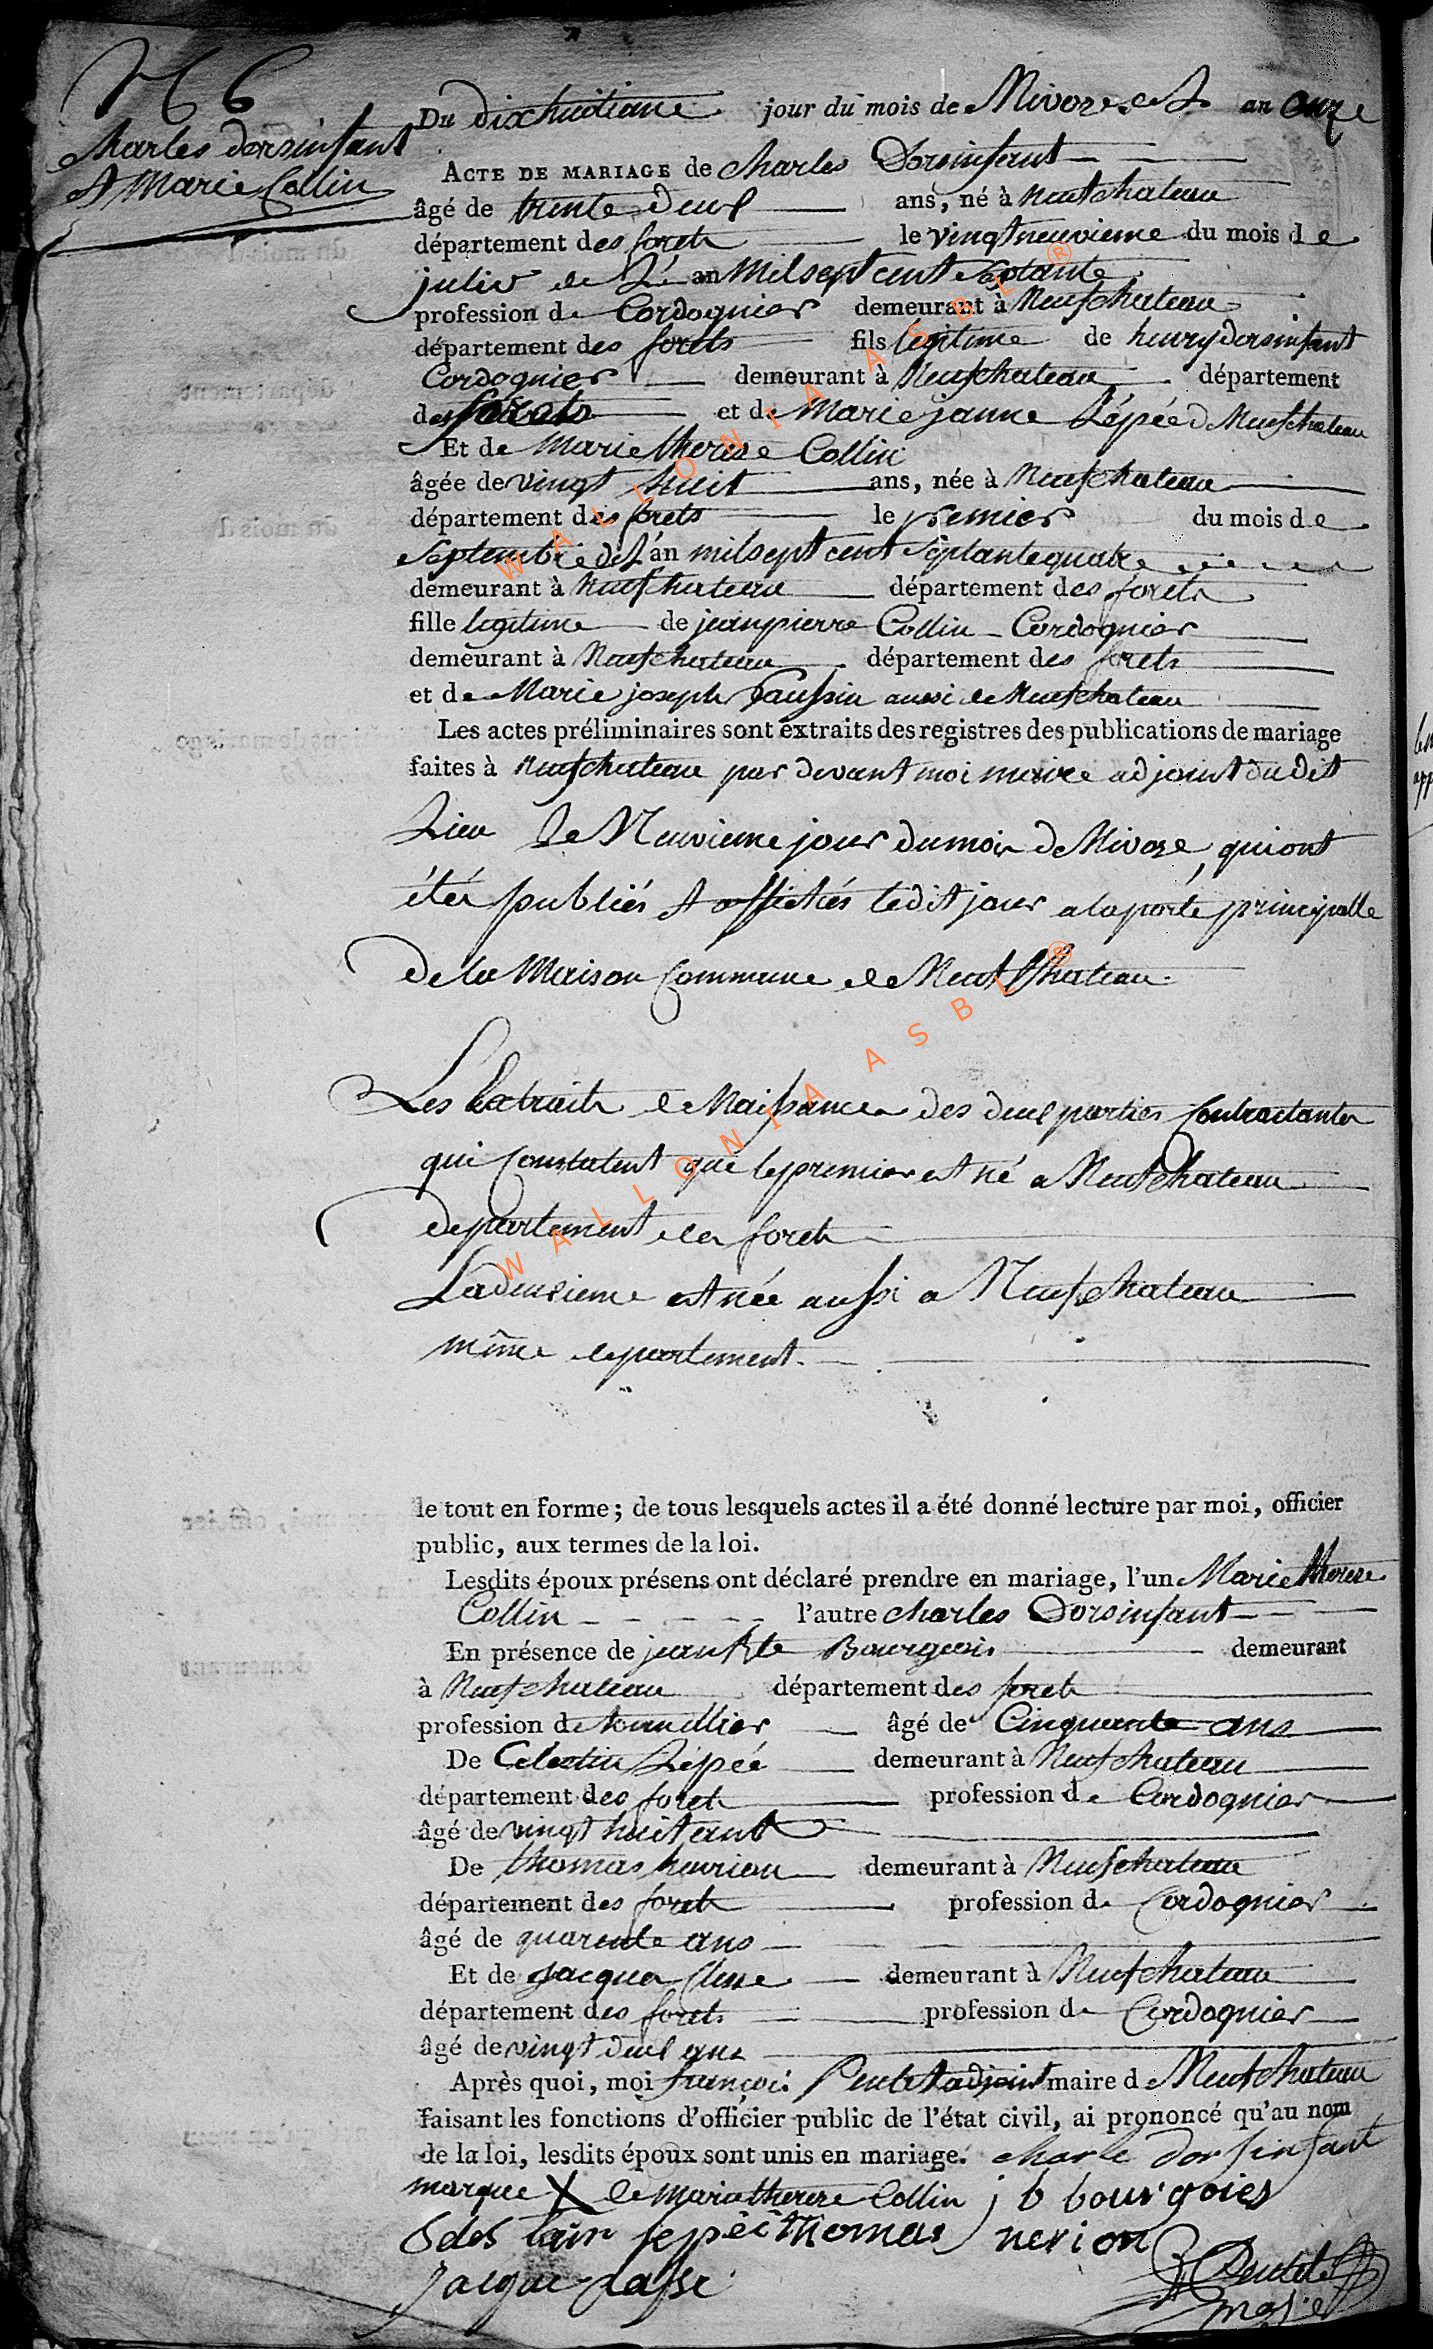 N 6
Charles dorsinfant
et Marie Collin
Du dixhuitieme jour du mois de Nivose et an onze
ACTE DE MARIAGE de Charles Dorsinfant
âgé de trente deux ans, né à neufchateau
département des forets le vingtneuvieme du mois de
julié de L' an milsept cent septante
profession de Cordognier demeurant à Neufchateau
département des forets fils legitime de henry dorsinfant
Cordognier demeurant à Neufchateau département
des forets et de Marie janne Lépée de Neufchateau
Et de Marie therese Collin
âgée de vingt huit ans, née à Neufchateau
département des forets le premier du mois de
Septembre de L'an milsept cent septantequatre
demeurant à Neufchateau département des forets
fille legitime de jeanpierre Collin Cordognier
demeurant à Neufchateau département des forets
et de Marie joseph aussi de Neufchateau
Les actes préliminaires sont extraits des registres des publications de mariage
faites à Neufchateau par devant moi maire adjoint dudit
Lieu Le Neuvieme jour du mois de Nivose, qui ont
étés publiés et affichés ledit jour a la porte principalle
de la Maison Commune de Neufchateau
Les Extraits de Naissances des deux parties Contractantes
qui Constatent que le premier est né a Neufchateau
departement des forets
La deuxieme est née aussi a Neufchateau
même departement.
le tout en forme; de tous lesquels actes il a été donné lecture par moi, officier
public, aux termes de la loi.
Lesdits époux présens ont déclaré prendre en mariage, l'un Marie Therese
Collin l'autre charles Dorsinfant
En présence de jean Bte Bourgeois demeurant
à Neufchateau département des forets
profession de tonnellier âgé de Cinquante ans
De Celestin Lépée demeurant à Neufchateau
département des forets profession de Cordognier
âgé de vingt huit ans
De thomas demeurant à Neufchateau
département des forets profession de Cordognier
âgé de quarente ans
Et de Jacques demeurant à Neufchateau
département des forets profession de Cordognier
âgé de vingt deux ans
Après quoi, moi françois Pentel adjoint maire de Neufchateau
faisant les fonctions d'officier public de l'état civil, ai prononcé qu'au nom
de la loi, lesdits époux sont unis en mariage. charle dorsinfant
marque X de Marie therese Collin j b bourgoies
lepéé thomas nerion
jacque
WALLONIA ASBL ®
WALLONIA ASBL ®